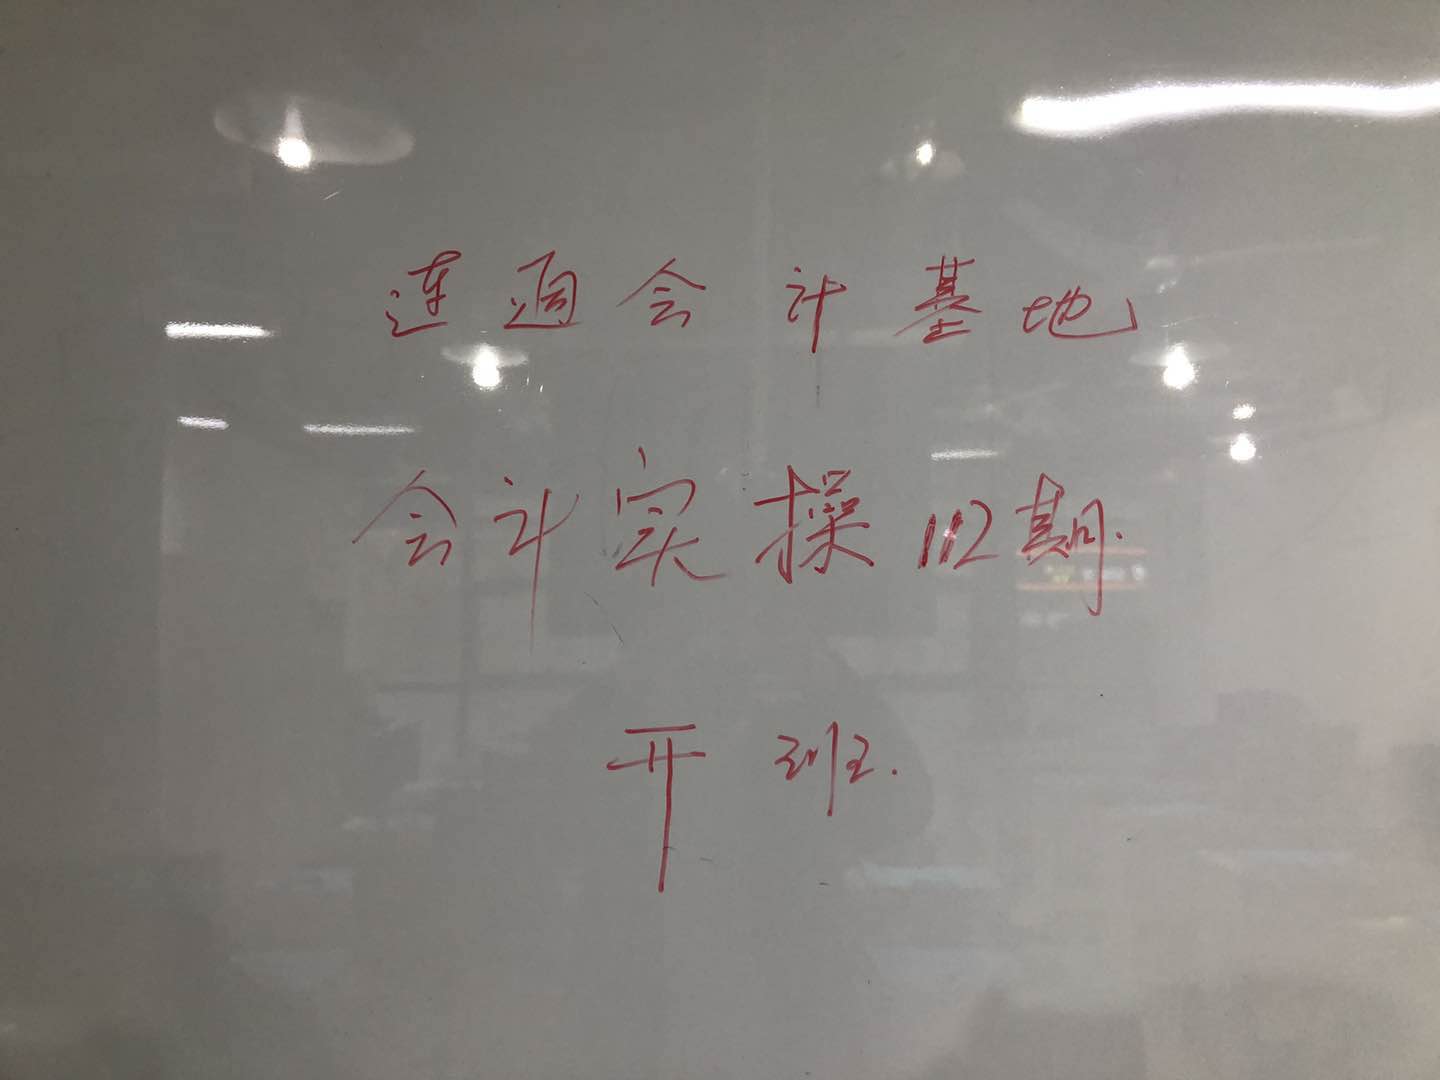 连通会计基地
会计实操112期.
开班.